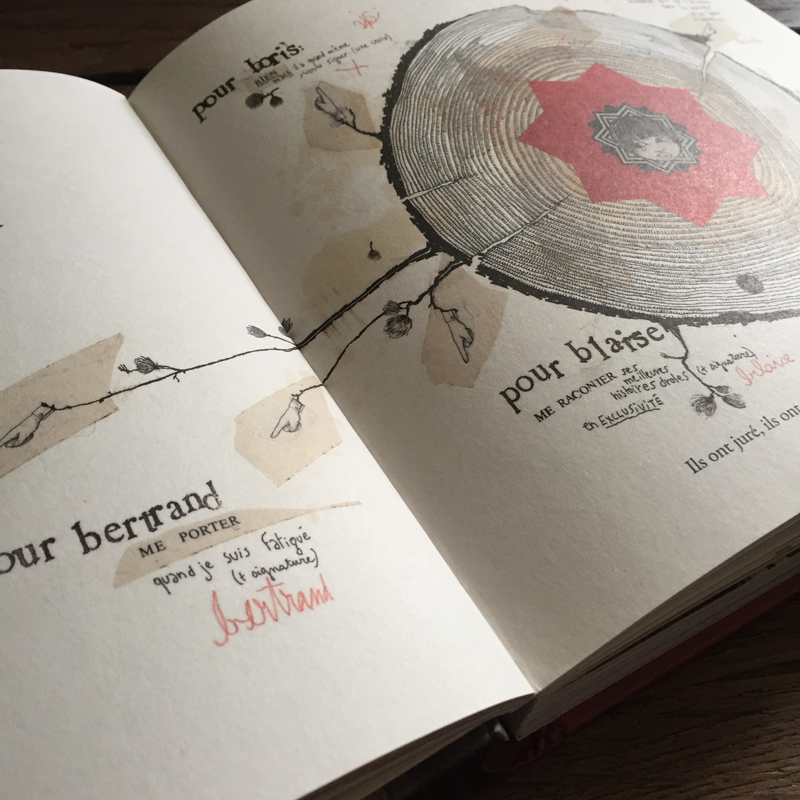 our bertrand
ME PORTER
quand je suis fatigué
(+ signature)
bertrand
pour boris:
RIEN
mais il a quand même
signer (une croix)
pour blaise
ME RACONTER ses
meilleures
histoires drôles (+ signature)
en EXCLUSIVITÉ
blaise
Ils ont juré, ils ont